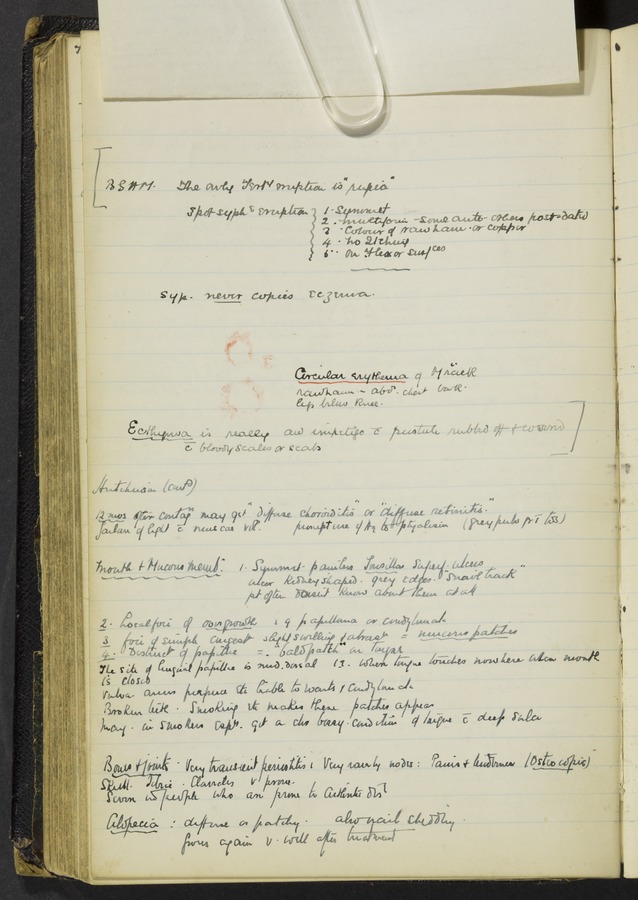 The only eruption is "rupia"
Spot syph: eruption 1. Symmet
2. multiform - some ante- others post-dated
3. Colour of raw ham or copper
4. no Itching
5. on Flexor surfces
Syp. never copies Eczema.
Circular erythema of
rawham - abd. chest back.
legs below knee.
Ecthyma is really an impetigo c̄ pustule rubbed off & covered
c̄ bloody scales or scabs
Hutchinson
12 mos after contagn may get "diffuse choroiditis" or "diffuse retinitis".
failure of light c̄ prompt use of Hg to ptyalism (grey pulv gr i tss)
Mouth & Mucous Memb: 1. Symmet. painless Tonsillar superf. ulcers
ulcer Kidney shaped. grey edges. "Snail track"
pt often doesnt know about them at all
2. Local foci of overgrowth of papilloma or condylomata
3 foci of simple congest slight swelling & abrasn = mucous patches
4. Distruct of papillae = "bald patch" on
The site of lingual papillae is mid. dorsal when tongue touches nowhere when mouth
is closed
Vulva anus liable to warts & condylomata
Smoking etc makes these patches appear
in smokers espec. get a condition of tongue c̄ deep sulci
Bones & Joints. Very transient periostitis: Very rarely nodes: Pains & tenderness (Osteocopic)
Skull. Tibiae. Clavicles v. prone.
Seen in people who are prone to
Alopecia: diffuse or patchy. also nail shedding.
grows again v. well after treatment